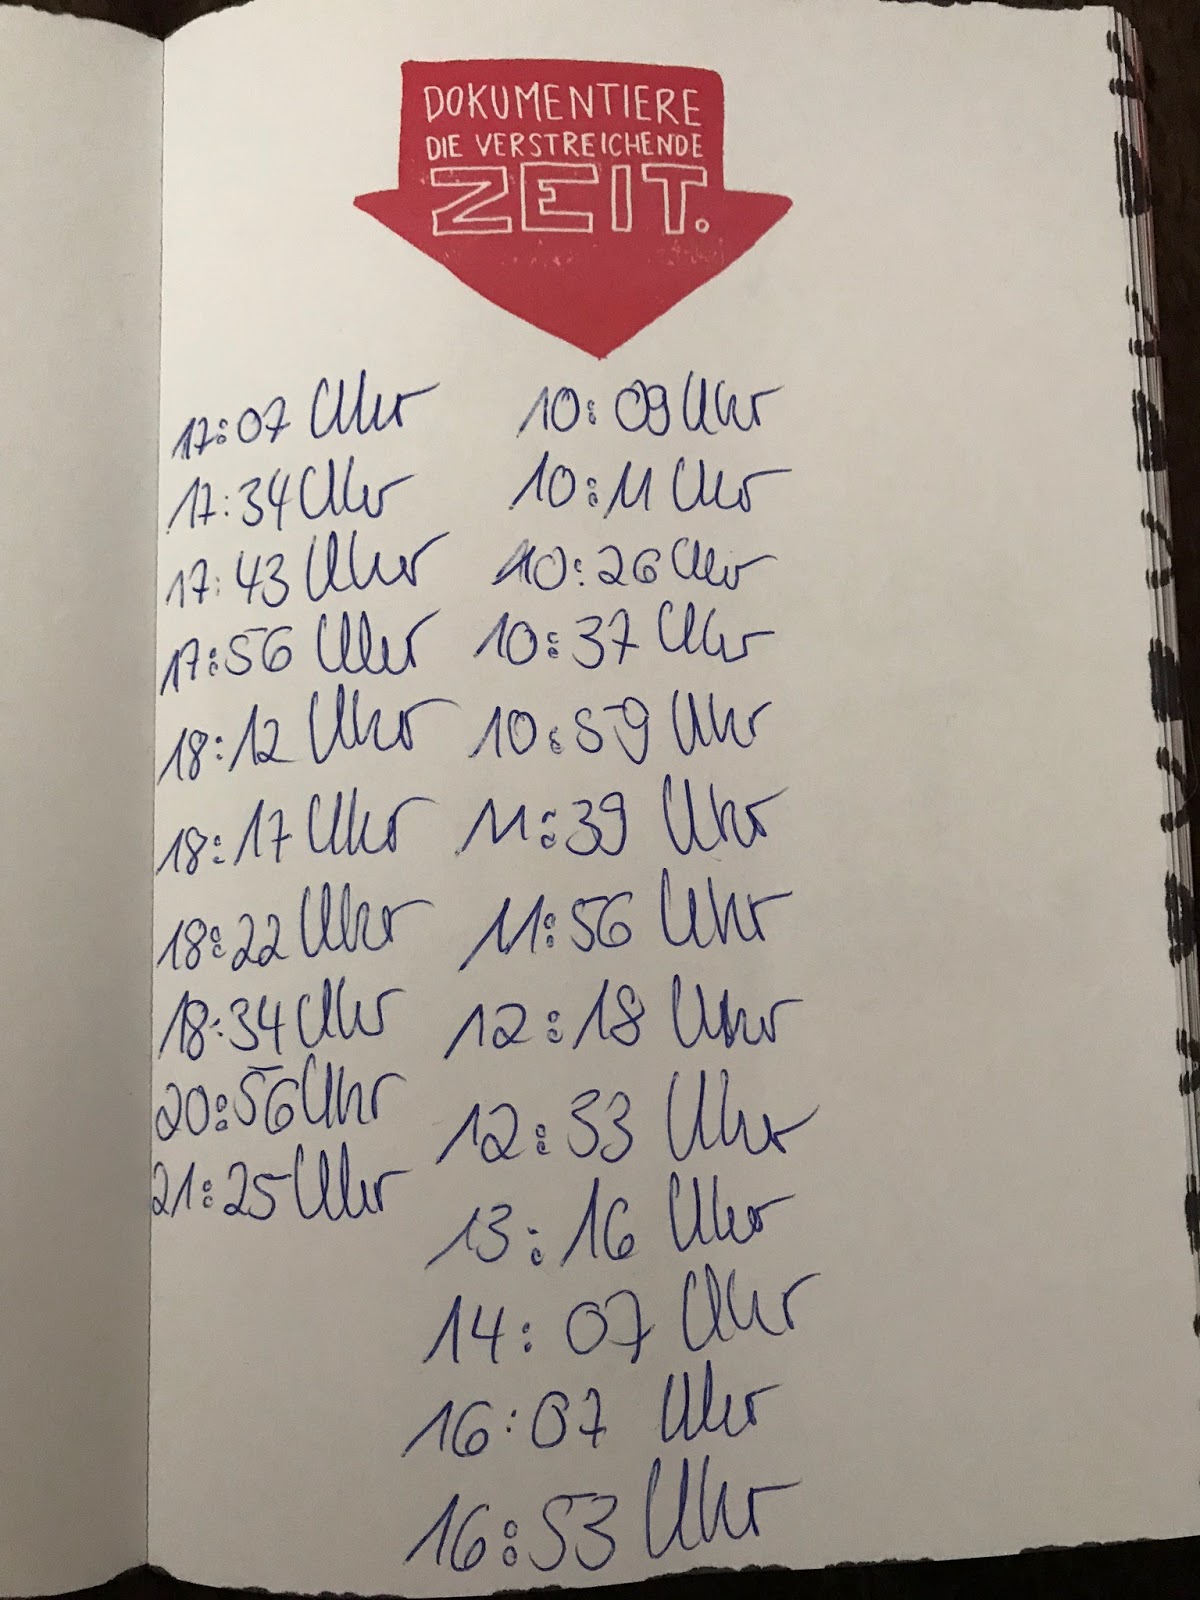 DOKUMENTIERE
DIE VERSTREICHENDE
ZEIT.
17:07 Uhr
17:34 Uhr
17:43 Uhr
17:56 Uhr
18:12 Uhr
18:17 Uhr
18:22 Uhr
18:34 Uhr
20:56 Uhr
21:25 Uhr
10:09 Uhr
10:11 Uhr
10:26 Uhr
10:37 Uhr
10:59 Uhr
11:39 Uhr
11:56 Uhr
12:18 Uhr
12:33 Uhr
13:16 Uhr
14:07 Uhr
16:07 Uhr
16:53 Uhr